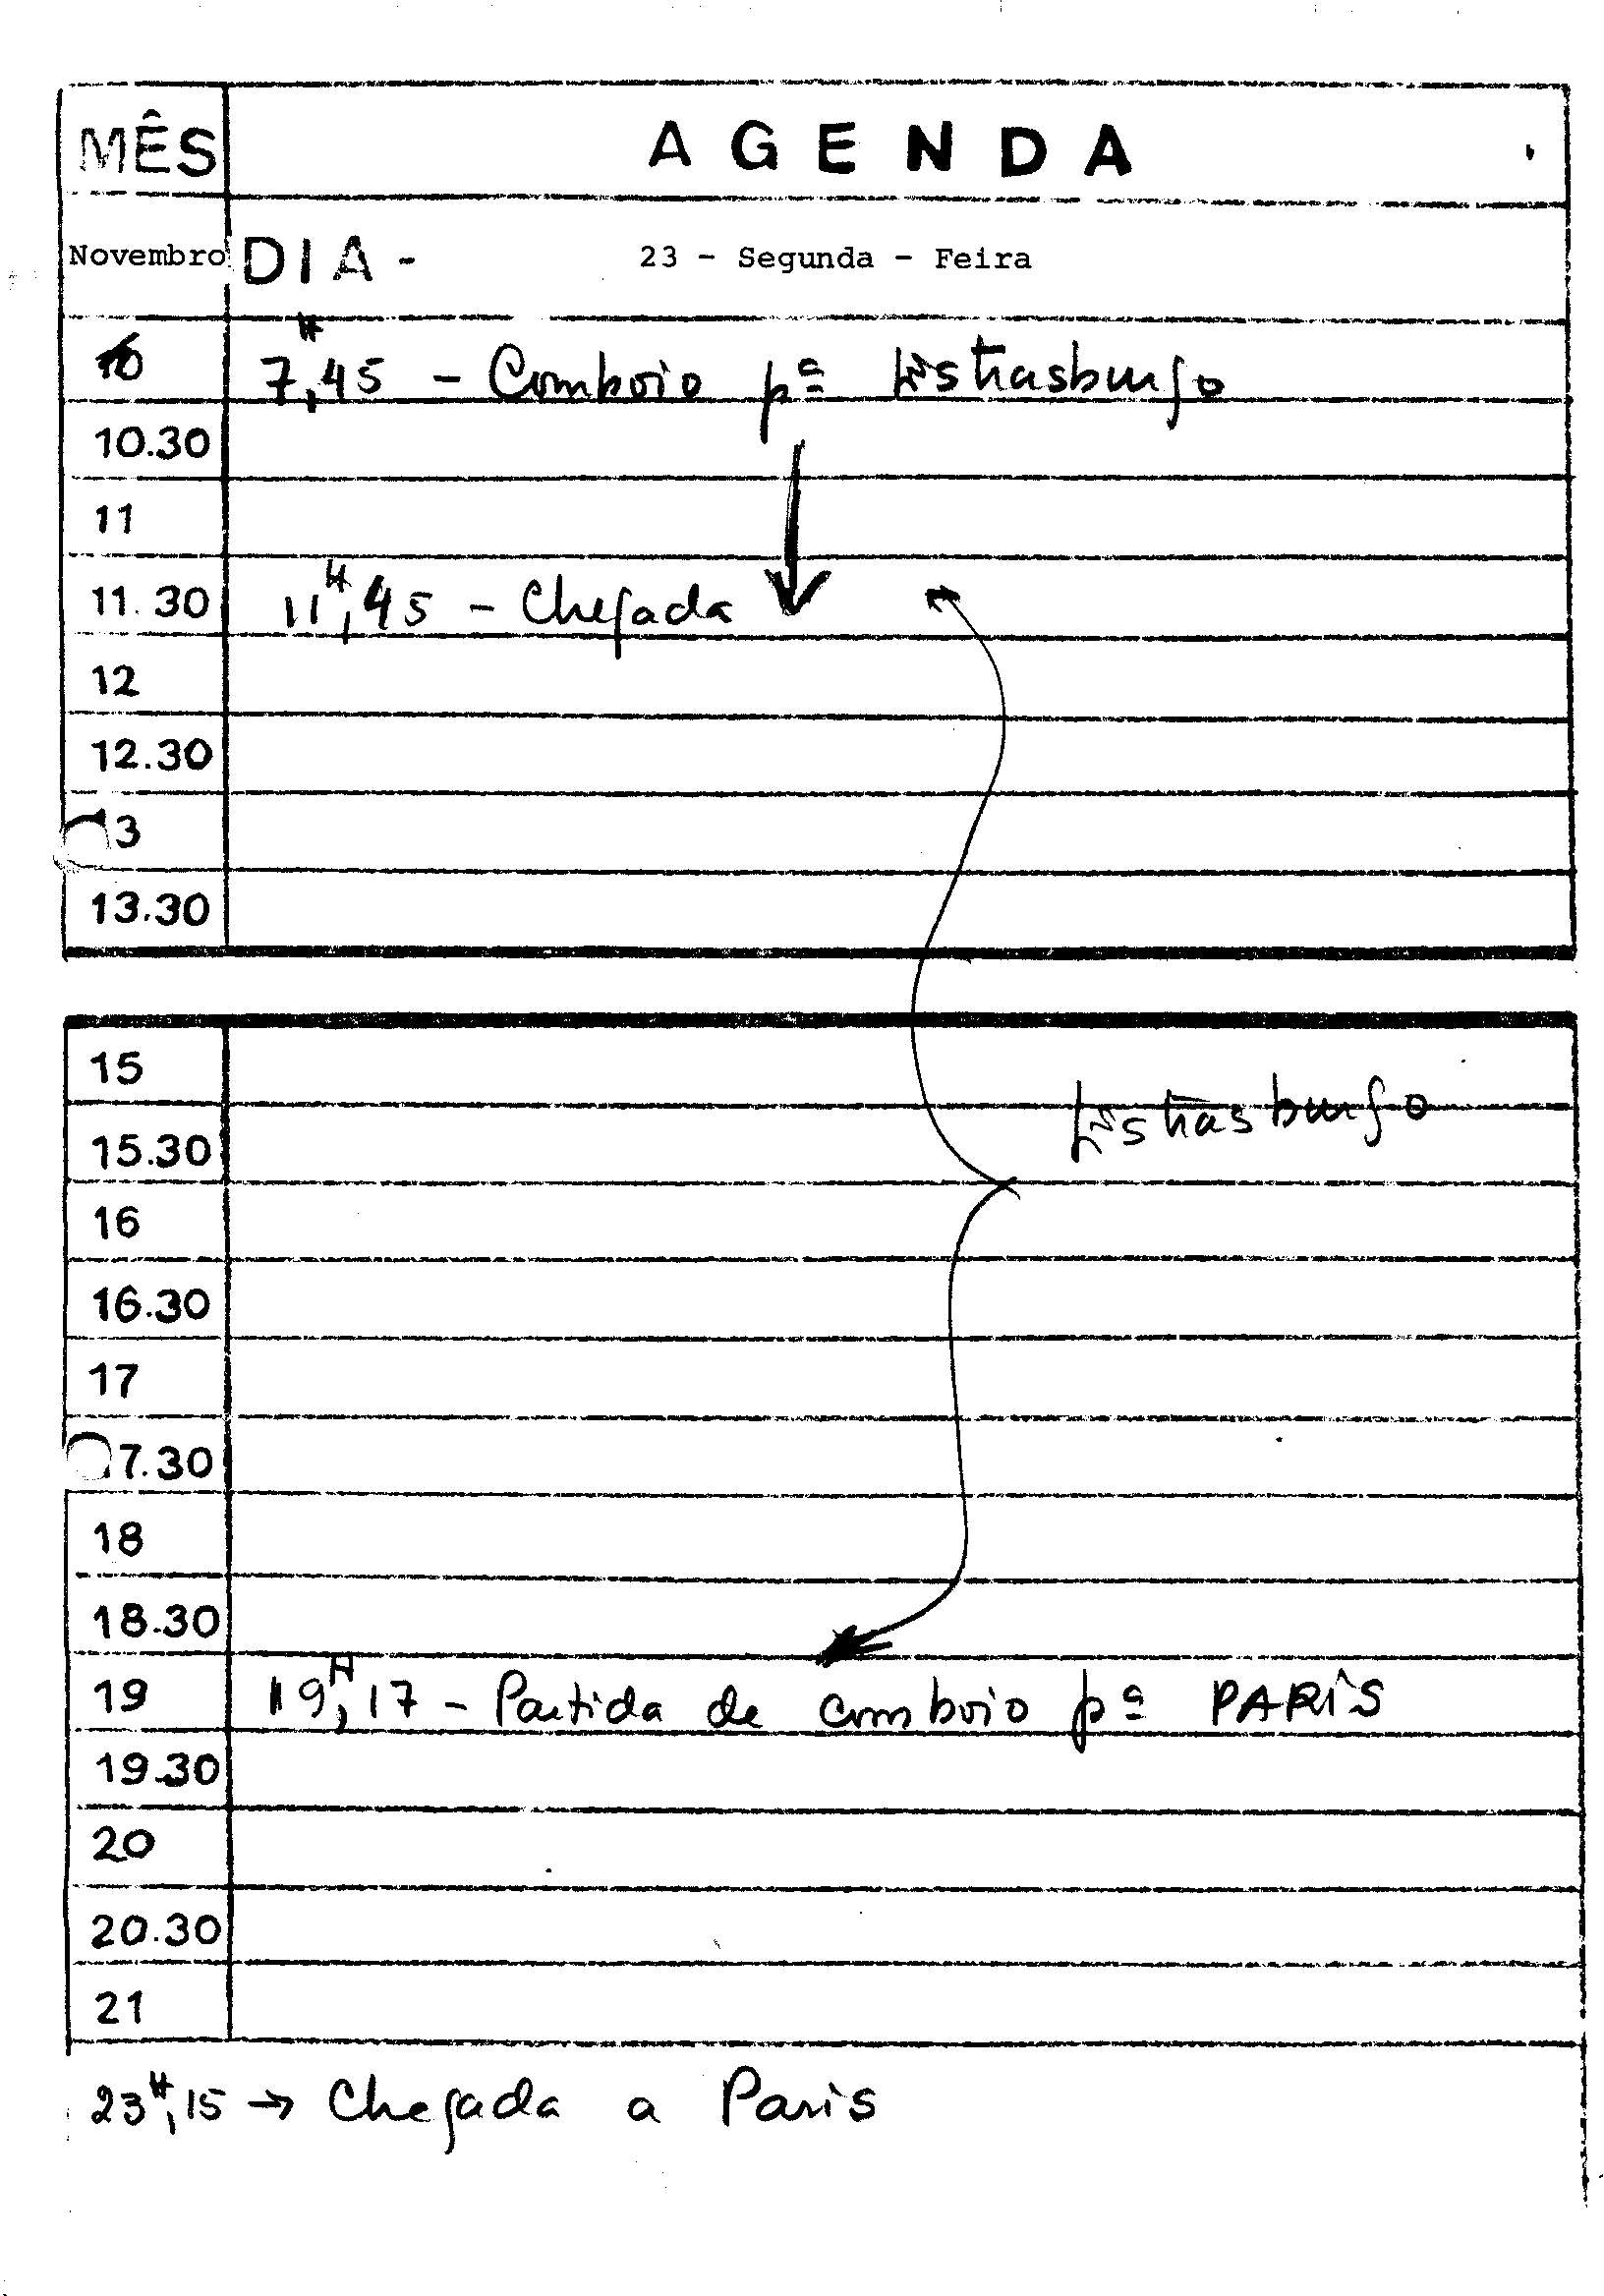 MÊS AGENDA
Novembro DIA - 23 - Segunda - Feira
10 7H,45 - Comboio pª Estrasburgo
10.30
11
11.30 11H,45 - Chegada
12
12.30
13
13.30
15
Estrasburgo
15.30
16
16.30
17
17.30
18
18.30
19 19H,17 - Partida de comboio pª PARIS
19.30
20
20.30
21
23H,15 → Chegada a Paris